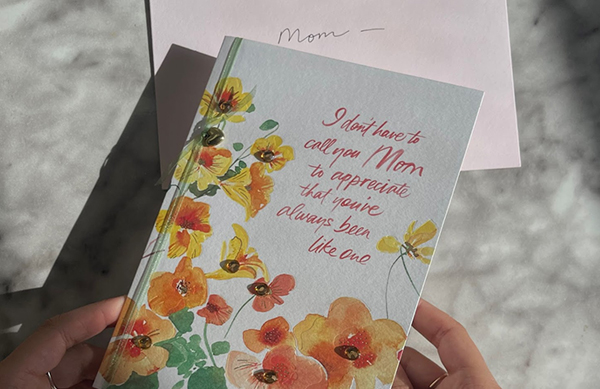 Mom —
I don't have to
call you Mom
to appreciate
that you've
always been
like one